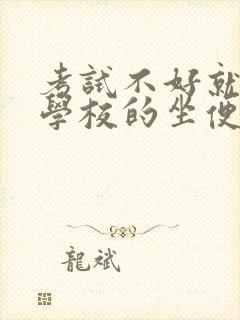 考試不好就
學校的坐便
龍斌